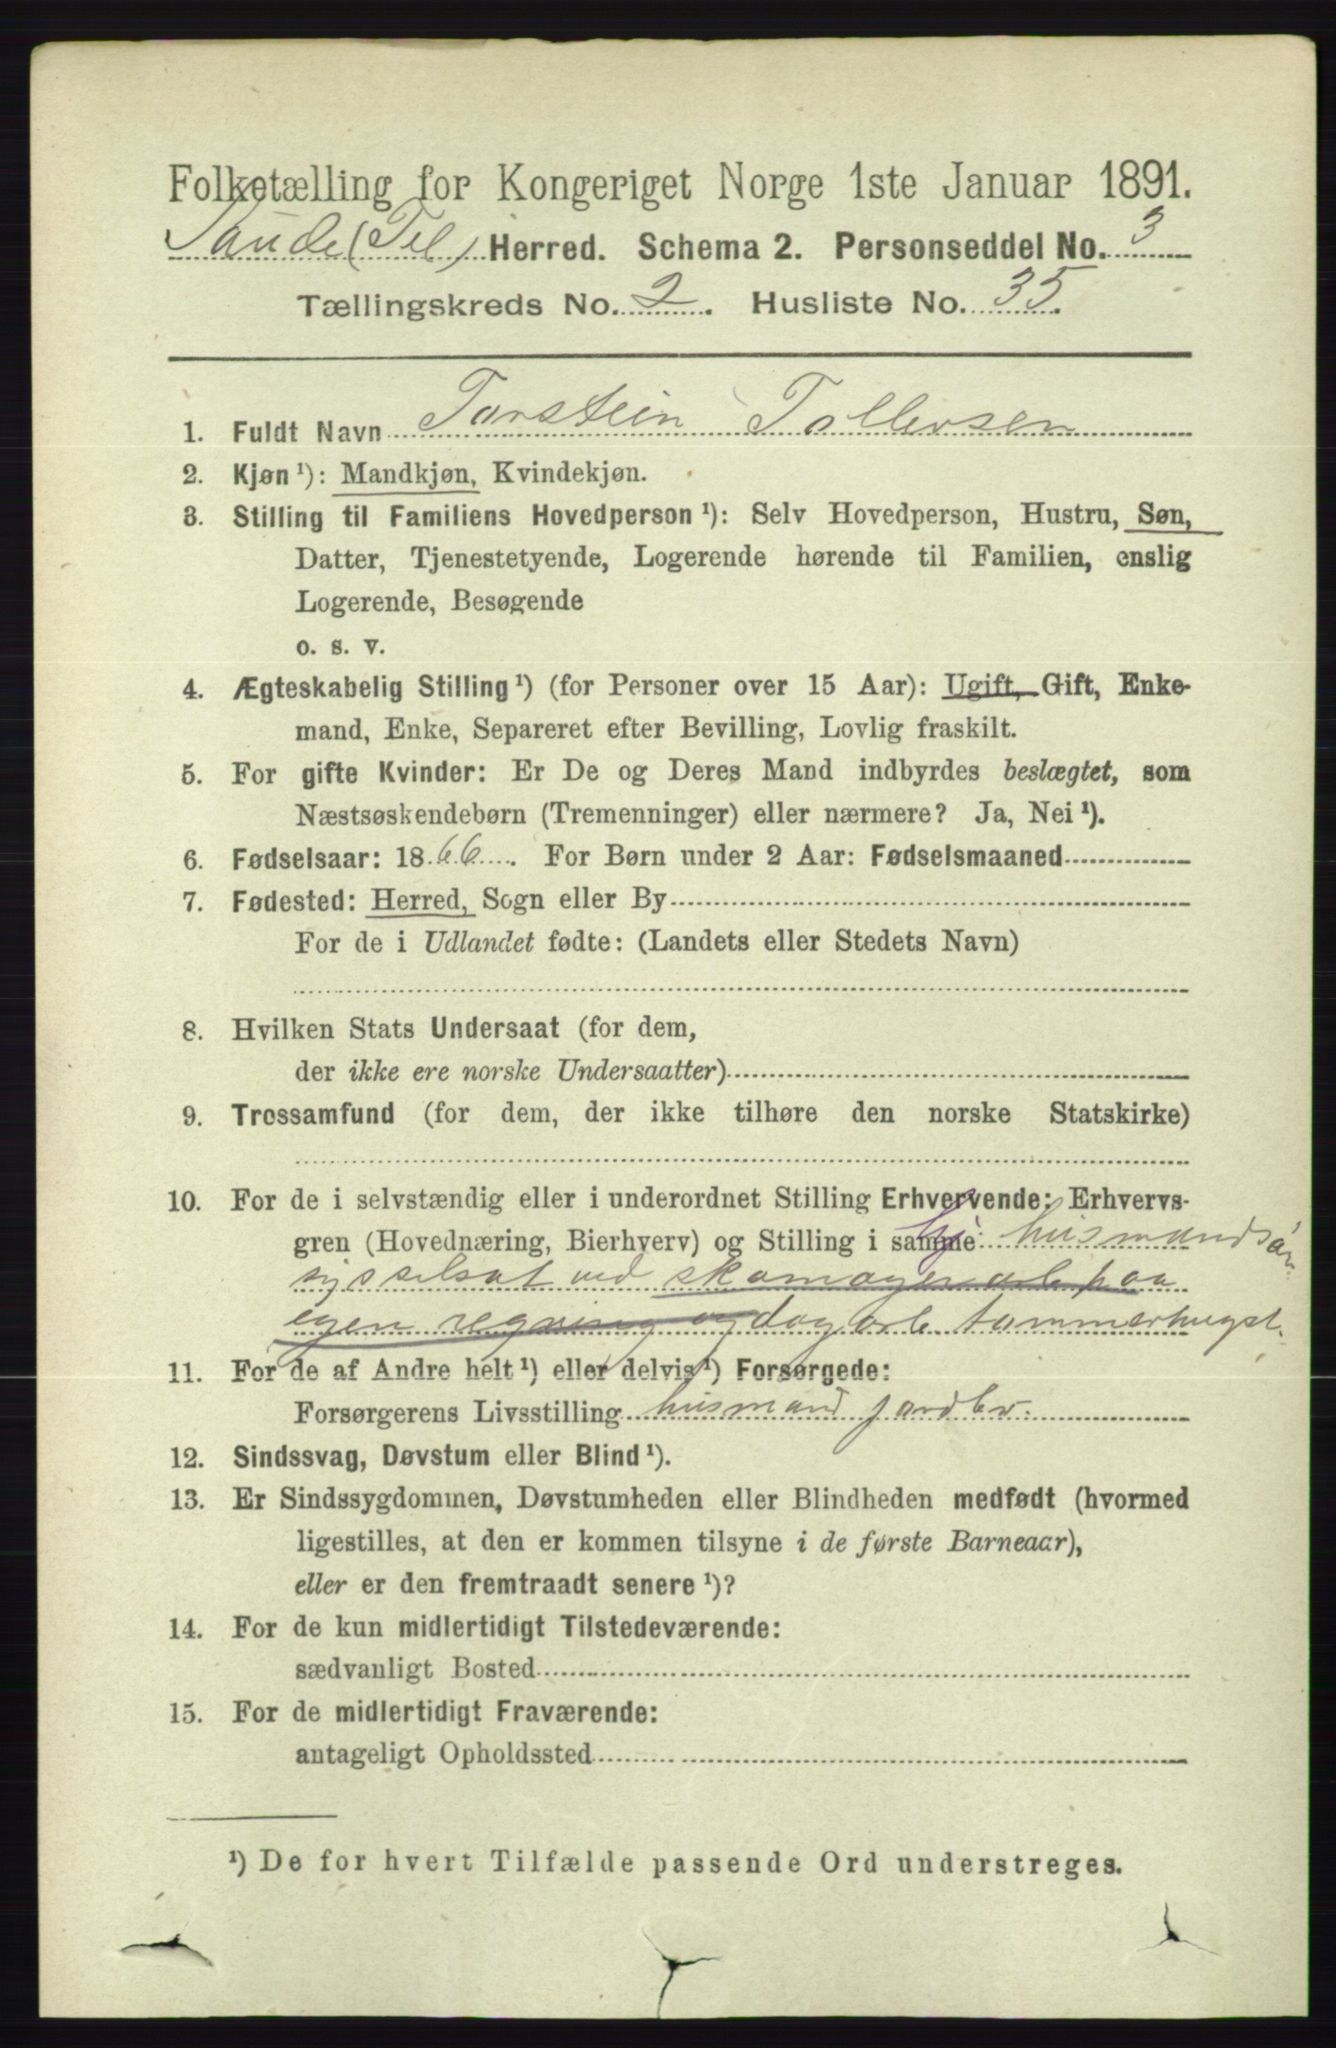 Folketælling for Kongeriget Norge 1ste Januar 1891.
Saude (Tel) Herred. Schema 2. Personseddel No. 3
Tællingskreds No. 2. Husliste No. 35.
1. Fuldt Navn Torstein Tollevsen
2. Kjøn ¹): Mandkjøn, Kvindekjøn.
3. Stilling til Familiens Hovedperson ¹): Selv Hovedperson, Hustru, Søn,
Datter, Tjenestetyende, Logerende hørende til Familien, enslig
Logerende, Besøgende
o. s. v.
4. Ægteskabelig Stilling ¹) (for Personer over 15 Aar): Ugift, Gift, Enke-
mand, Enke, Separeret efter Bevilling, Lovlig fraskilt.
5. For gifte Kvinder: Er De og Deres Mand indbyrdes beslægtet, som
Næstsøskendebørn (Tremenninger) eller nærmere? Ja, Nei ¹).
6. Fødselsaar: 1866. For Børn under 2 Aar: Fødselsmaaned
7. Fødested: Herred, Sogn eller By
For de i Udlandet fødte: (Landets eller Stedets Navn)
8. Hvilken Stats Undersaat (for dem,
der ikke ere norske Undersaatter)
9. Trossamfund (for dem, der ikke tilhøre den norske Statskirke)
10. For de i selvstændig eller i underordnet Stilling Erhvervende: Erhvervs-
gren (Hovednæring, Bierhverv) og Stilling i samme: husmandsøn
sysselsat ved skomagerarb paa
egen regning og dagarb tømmerhugst.
11. For de af Andre helt ¹) eller delvis ¹) Forsørgede:
Forsørgerens Livsstilling husmand jordbr.
12. Sindssvag, Døvstum eller Blind ¹).
13. Er Sindssygdommen, Døvstumheden eller Blindheden medfødt (hvormed
ligestilles, at den er kommen tilsyne i de første Barneaar),
eller er den fremtraadt senere ¹)?
14. For de kun midlertidigt Tilstedeværende:
sædvanligt Bosted
15. For de midlertidigt Fraværende:
antageligt Opholdssted
¹) De for hvert Tilfælde passende Ord understreges.